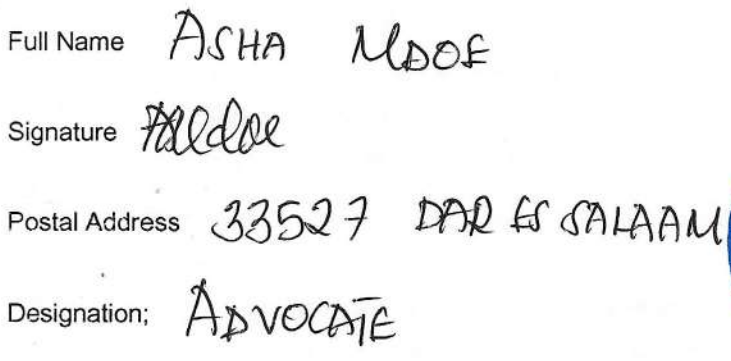 Full Name ASHA MDOE
Signature AMdoe
Postal Address 33527 DAR ES SALAAM
Designation; ADVOCATE